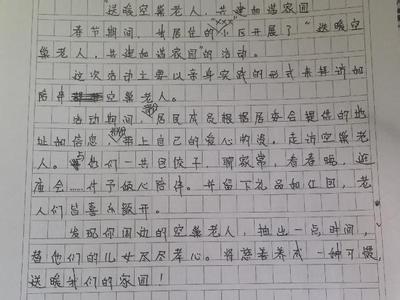 "送暖空巢老人,共建和谐家园
春节期间,我居住的"×××"小区开展了"送暖空
巢老人,共建和谐家园"的活动。
这次活动主要以亲身实践的形式来拜访和
陪伴空巢老人。
活动期间,居民成员根据居委会提供的地
址和信息,带上自己的爱心物资,走访空巢老
人。他们一共包饺子,聊家常,看春晚,逛
庙会……付予倾心陪伴。并留下礼品和红包,老
人们皆喜乐颜开。
发现你周边的空巢老人,抽出一点时间,
替他们的儿女尽尽孝心。将慈善养成一种习惯,
送暖我们的家园!